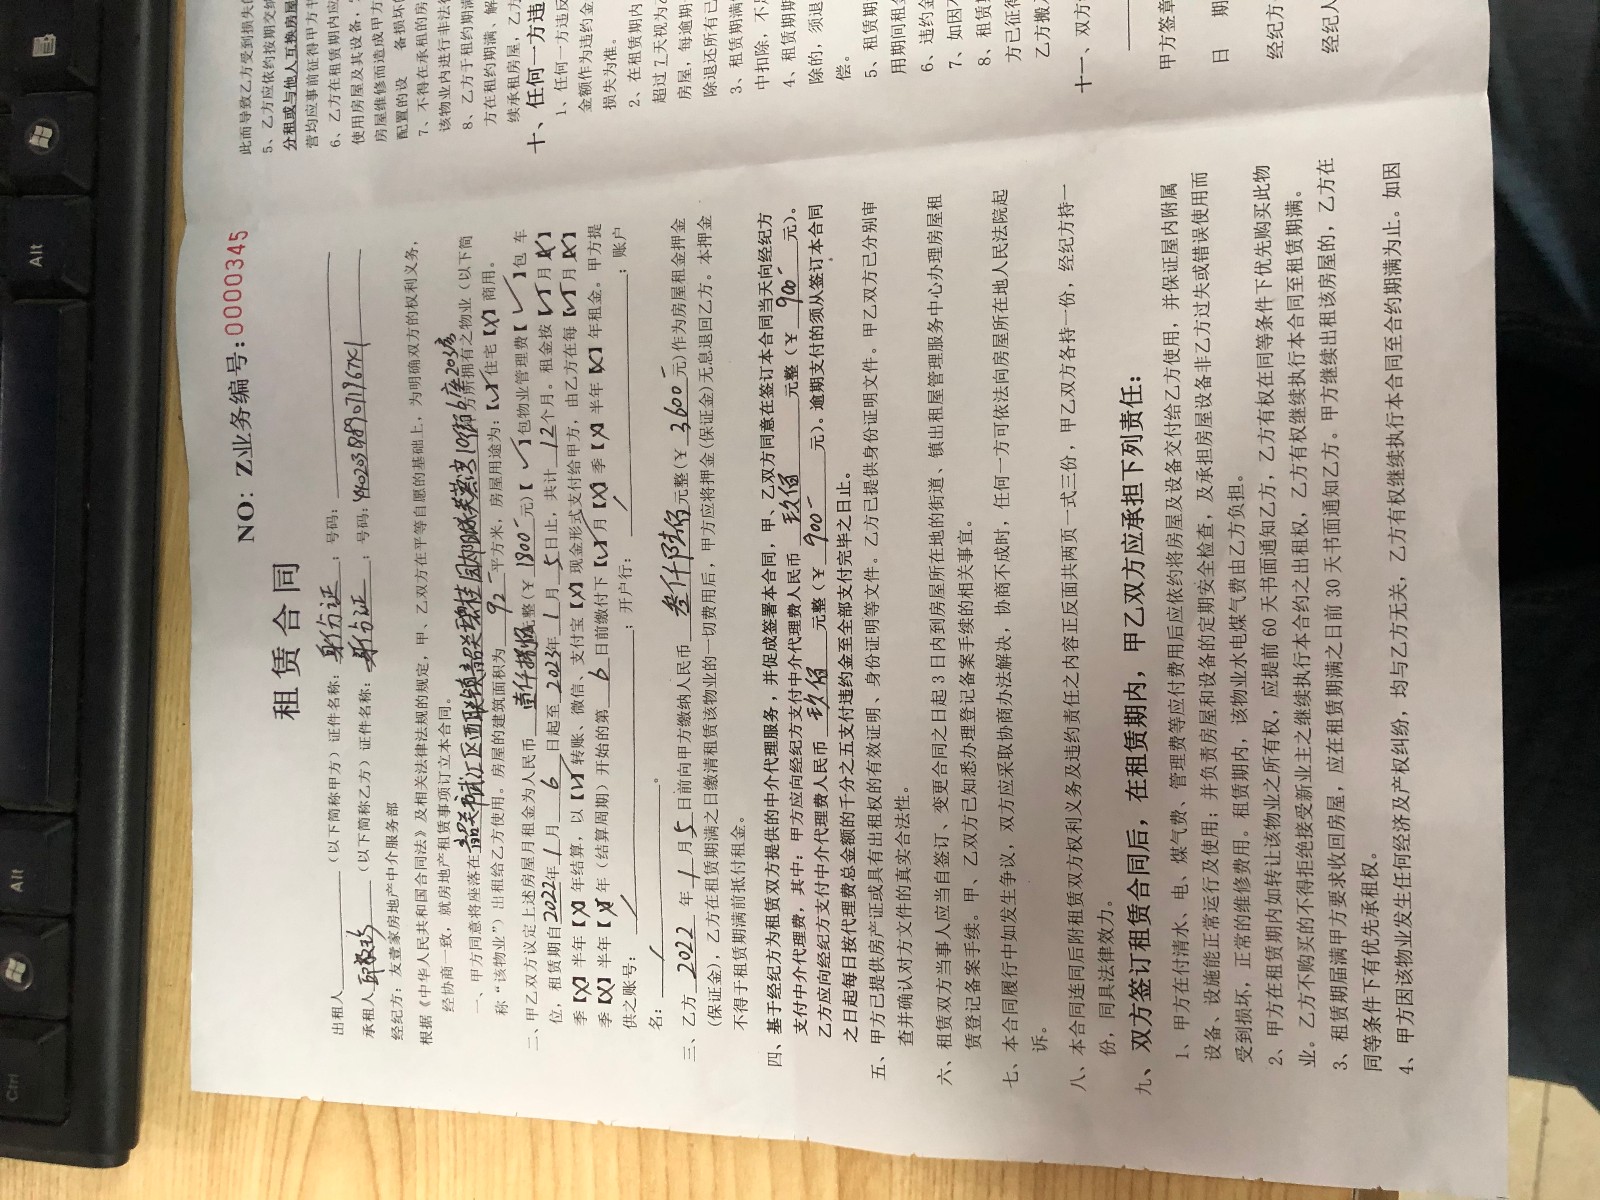 租赁合同
NO: Z业务编号:0000345
出租人（以下简称甲方）证件名称: 身份证；号码:
承租人（以下简称乙方）证件名称: 身份证；号码:
经纪方: 友壹家房地产中介服务部
根据《中华人民共和国合同法》及相关法律法规的规定，甲、乙双方在平等自愿的基础上，为明确双方的权利义务，
经协商一致，就房地产租赁事项订立本合同。
一、甲方同意将座落在韶关市武江区西联镇韶关碧桂园 方所拥有之物业（以下简
称“该物业”）出租给乙方使用。房屋的建筑面积为 92 平方米，房屋用途为:【√】住宅【X】商用。
二、甲乙双方议定上述房屋月租金为人民币 壹仟捌佰 元整(￥ 1800 元)【√】包物业管理费【√】包车
位，租赁期自2022年 1 月 6 日起至 2023年 1 月 5 日止，共计 12 个月。租金按【√】月【X】
季【X】半年【X】年结算，以【√】转账、微信、支付宝【X】现金形式支付给甲方，由乙方在每【√】月【X】
季【X】半年【X】年（结算周期）开始的第 6 日前缴付下【√】月【X】季【X】半年【X】年租金。甲方提
供之账号: / ；开户行: / ；账户
名: / 。
三、乙方 2022 年 1 月 5 日前向甲方缴纳人民币 叁仟陆佰 元整(￥ 3600 元)作为房屋租金押金
(保证金)，乙方在租赁期满之日缴清租赁该物业的一切费用后，甲方应将押金(保证金)无息退回乙方。本押金
不得于租赁期满前抵付租金。
四、基于经纪方为租赁双方提供的中介代理服务，并促成签署本合同，甲、乙双方同意在签订本合同当天向经纪方
支付中介代理费，其中: 甲方应向经纪方支付中介代理费人民币 玖佰 元整(￥ 900 元)。
乙方应向经纪方支付中介代理费人民币 玖佰 元整(￥ 900 元)。逾期支付的须从签订本合同
之日起每日按代理费总金额的千分之五支付违约金至全部支付完毕之日止。
五、甲方已提供房产证或具有出租权的有效证明、身份证明等文件。乙方已提供身份证明文件。甲乙双方已分别审
查并确认对方文件的真实合法性。
六、租赁双方当事人应当自签订、变更合同之日起 3 日内到房屋所在地的街道、镇出租屋管理服务中心办理房屋租
赁登记备案手续。甲、乙双方已知悉办理登记备案手续的相关事宜。
七、本合同履行中如发生争议，双方应采取协商办法解决，协商不成时，任何一方可依法向房屋所在地人民法院起
诉。
八、本合同连同后附租赁双方权利义务及违约责任之内容正反面共两页一式三份，甲乙双方各持一份，经纪方持一
份，同具法律效力。
九、双方签订租赁合同后，在租赁期内，甲乙双方应承担下列责任:
1、甲方在付清水、电、煤气费、管理费等应付费用后应依约将房屋及设备交付给乙方使用，并保证屋内附属
设备、设施能正常运行及使用; 并负责房屋和设备的定期安全检查，及承担房屋设备非乙方过失或错误使用而
受到损坏，正常的维修费用。租赁期内，该物业水电煤气费由乙方负担。
2、甲方在租赁期内如转让该物业之所有权，应提前 60 天书面通知乙方，乙方有权在同等条件下优先购买此物
业。乙方不购买的不得拒绝接受新业主之继续执行本合约之出租权，乙方有权继续执行本合同至租赁期满。
3、租赁期届满甲方要求收回房屋，应在租赁期满之日前 30 天书面通知乙方。甲方继续出租该房屋的，乙方在
同等条件下有优先承租权。
4、甲方因该物业发生任何经济及产权纠纷，均与乙方无关，乙方有权继续执行本合同至合约期满为止。如因
此而导致乙方受到损失的
5、乙方应依约按期交纳
分租或与他人互换房屋
营均应事前征得甲方书
6、乙方在租赁期内应
使用房屋及其设备，
房屋维修而造成甲方
配置的设 备损坏的
7、不得在承租的房
该物业内进行非法
8、乙方于租约期满
方在租约期满、解
续承租房屋，乙方
十、任何一方违
1、任何一方违反
金额作为违约金
损失为准。
2、在租赁期内
超过 7 天视为
房屋，每逾期
除退还所有已
3、租赁期满
中扣除，不
4、租赁期
除的，须退
偿。
5、租赁期
用期间租金
6、违约金
7、如因不
8、租赁
方已征得
乙方搬
十一、双方
甲方签章
日 期
经纪方
经纪人
Ctrl
Alt
Alt